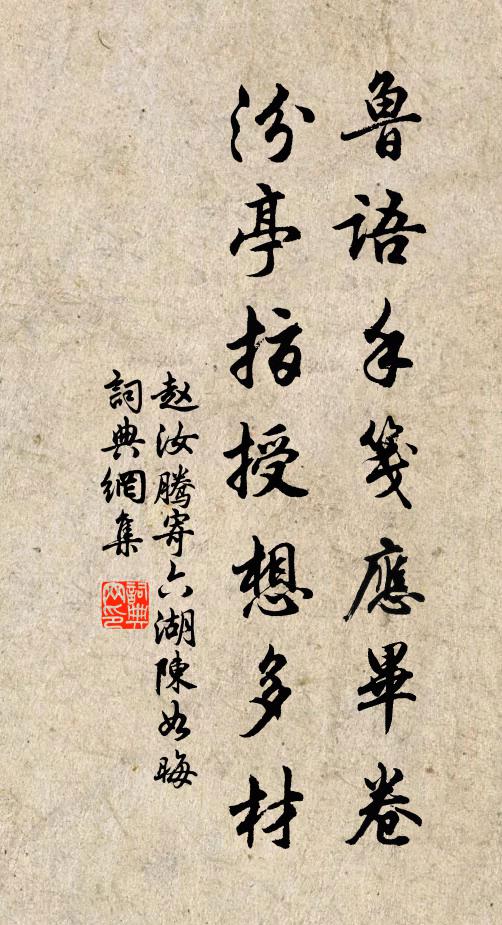 鲁语手笺應畢卷
汾亭指授想多材
赵汝腾寄六湖陳如晦
詞典網集
詞典
网印